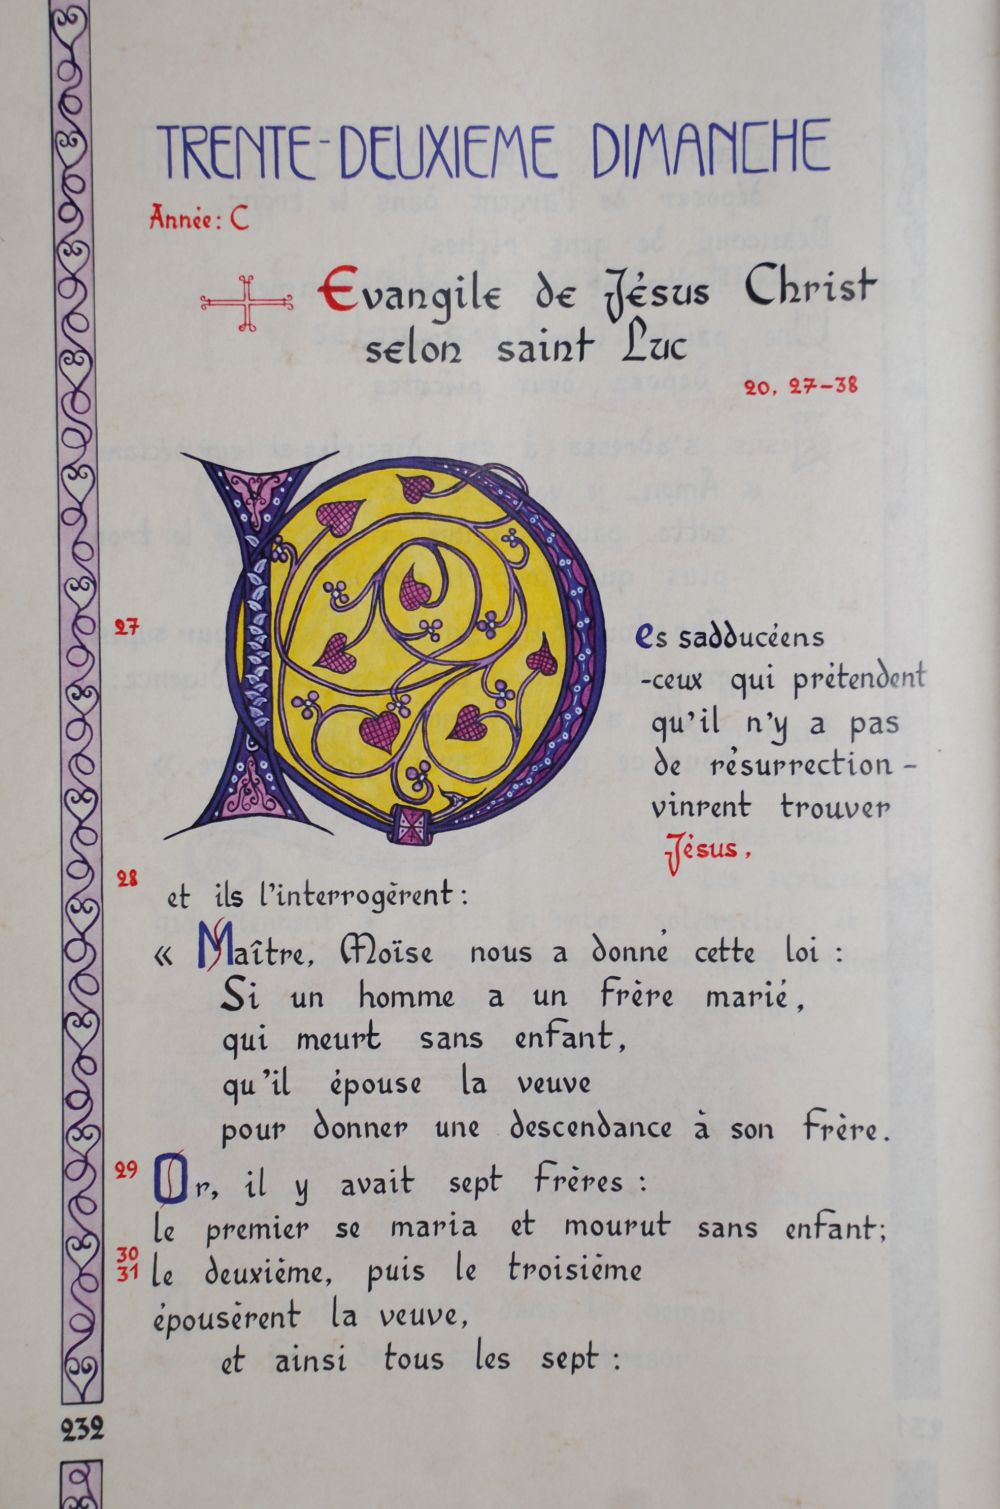 TRENTE-DEUXIEME DIMANCHE
Année: C
Evangile de Jésus Christ
selon saint Luc
20, 27-38
27 Des sadducéens
-ceux qui prétendent
qu'il n'y a pas
de résurrection -
vinrent trouver
Jésus,
28 et ils l'interrogèrent :
« Maître, Moïse nous a donné cette loi :
Si un homme a un frère marié,
qui meurt sans enfant,
qu'il épouse la veuve
pour donner une descendance à son frère.
29 Or, il y avait sept frères :
le premier se maria et mourut sans enfant;
30
31 le deuxième, puis le troisième
épousèrent la veuve,
et ainsi tous les sept :
232